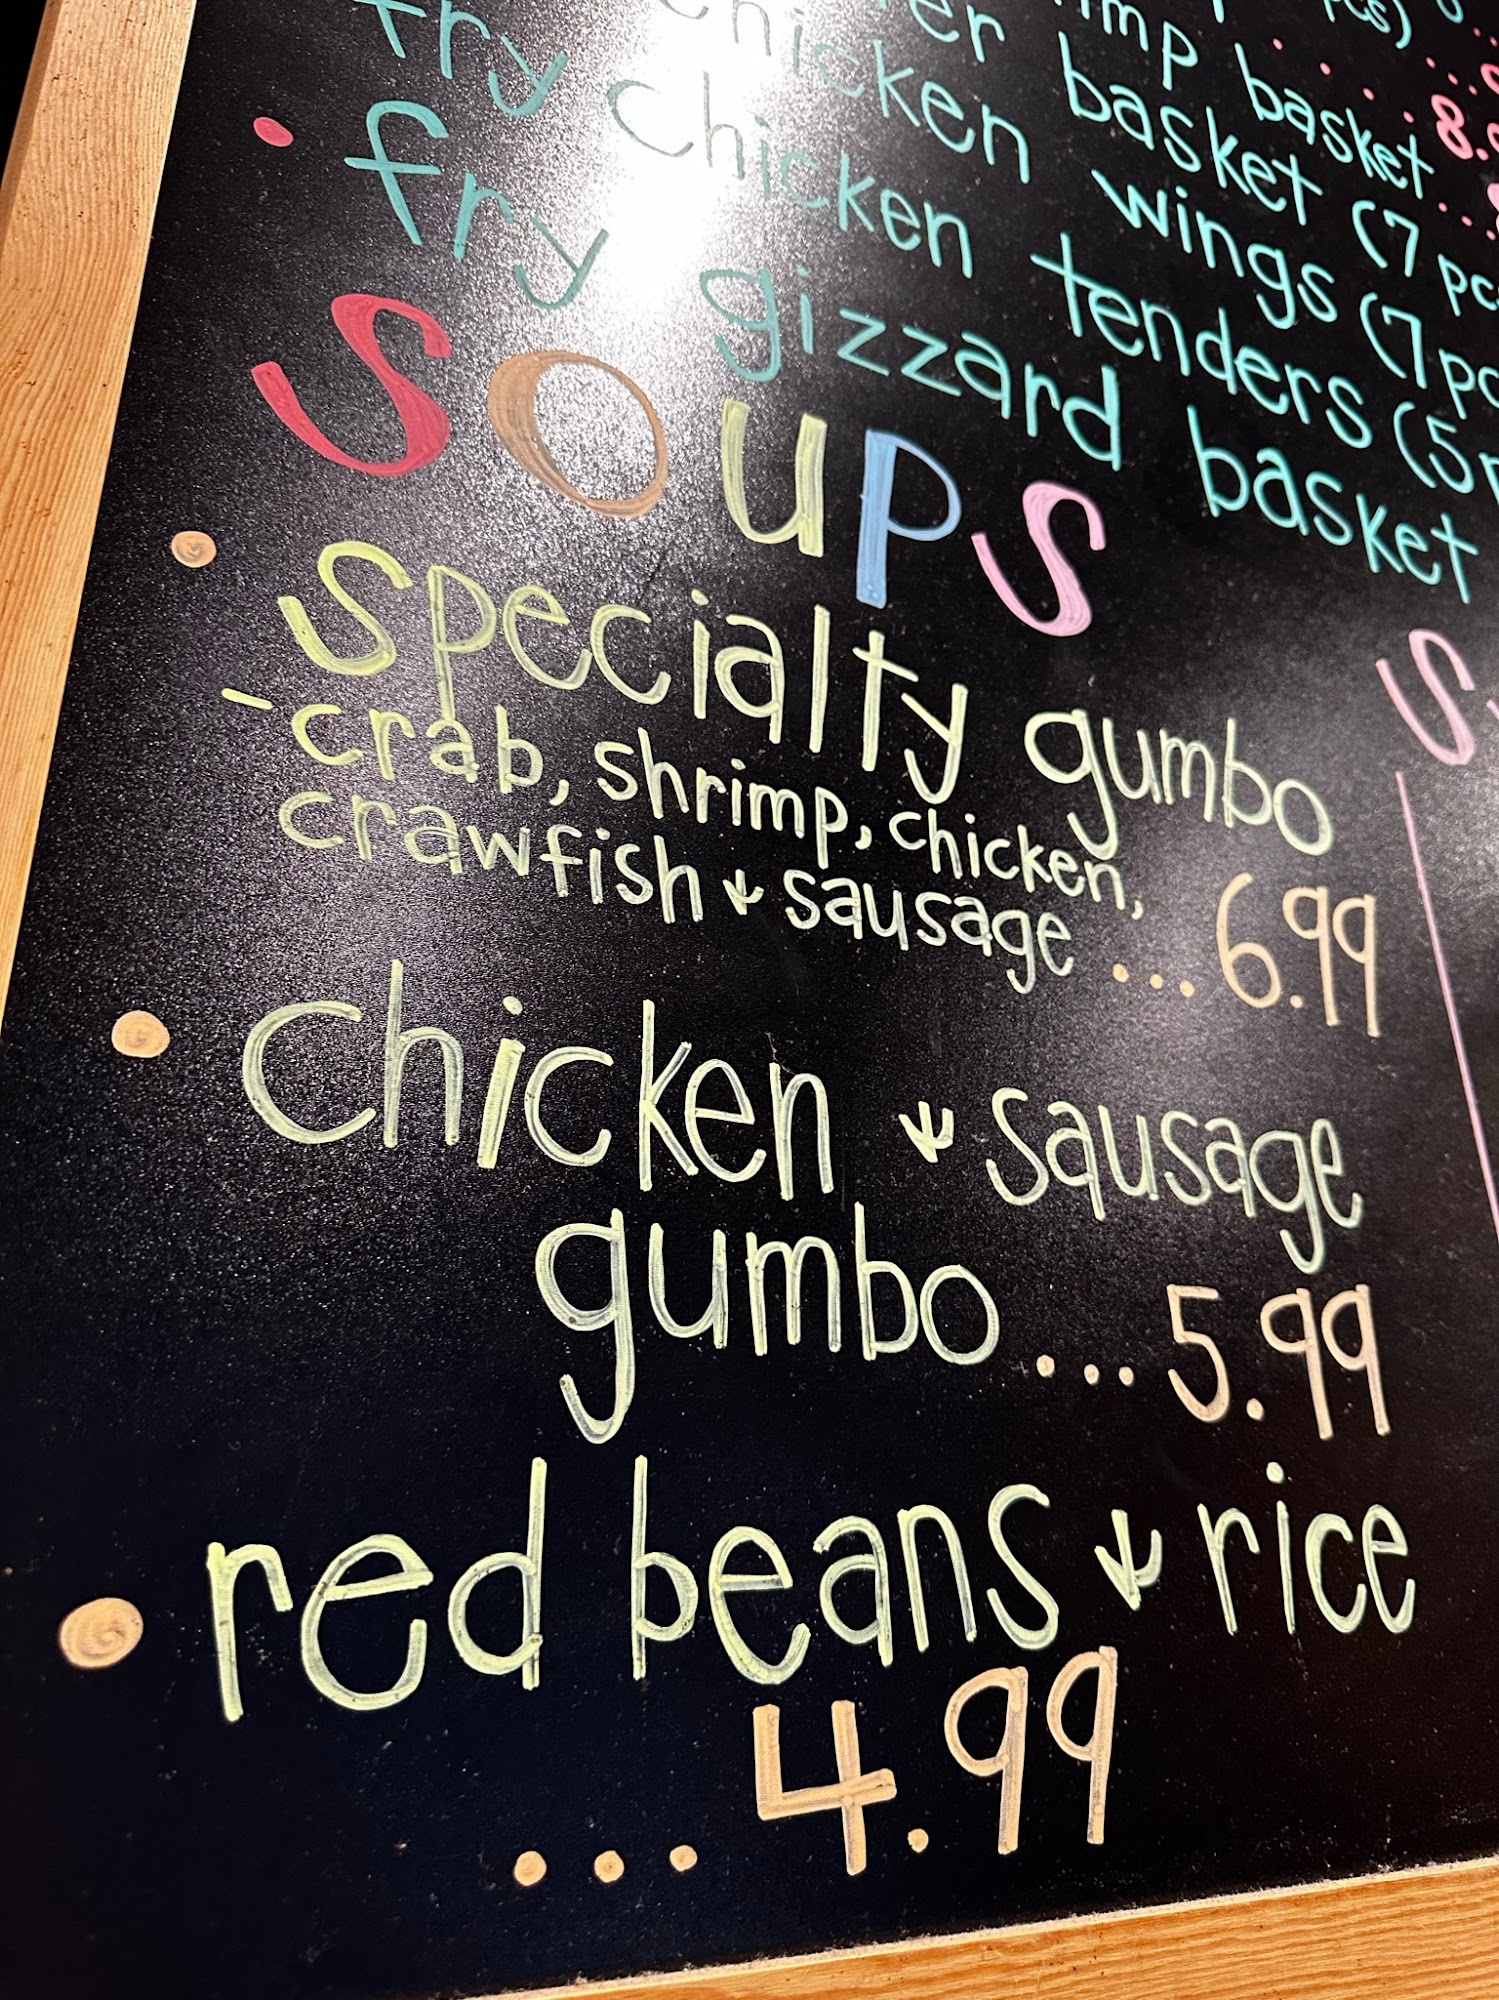 basket
basket (7
fry chicken wings (7
fry chicken tenders (5
fry gizzard basket
soups
specialty gumbo
-crab, shrimp, chicken,
crawfish & sausage ...6.99
chicken & sausage
gumbo...5.99
red beans & rice
...4.99